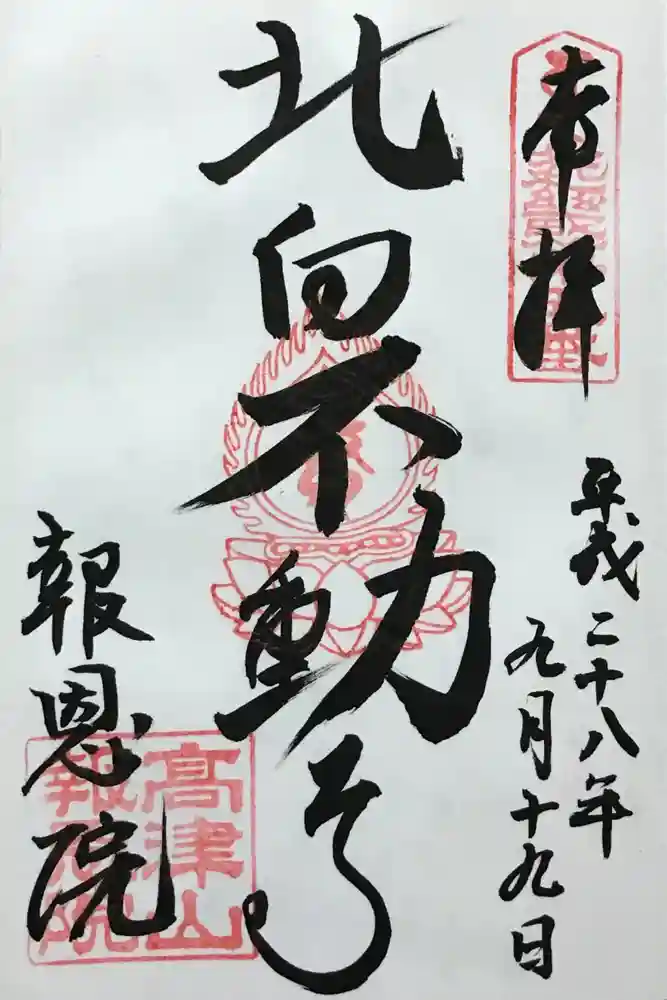 奉拝
平成二十八年
九月十九日
北向不動尊
報恩院
高津山
報恩院